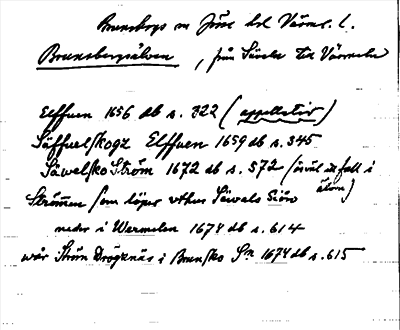 Brunskogs sn Jösse hd Värml. l.
Brunsbergsälven, från Säveln till Värmeln
Elffuen 1656 db s. 322 (appellativ)
Säffuelskogz Elffuen 1659 db s. 345
Säwelsko Ström 1672 db s. 572 (övål. utfall i älven)
Strömen som löper uthur Säwals Siön
neder i Wermelen 1674 db s. 614
wår Ström Drögknäs i Brunsko Sn 1674 db s. 615